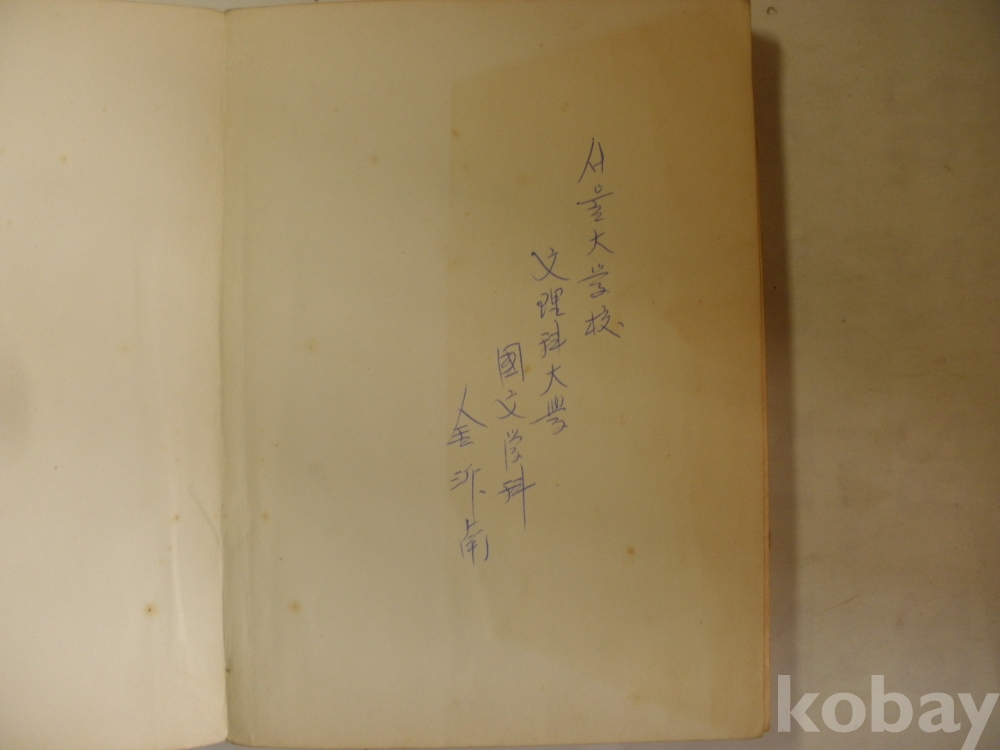 서울大学校
文理科大學
國文学科
金沂南
kobay